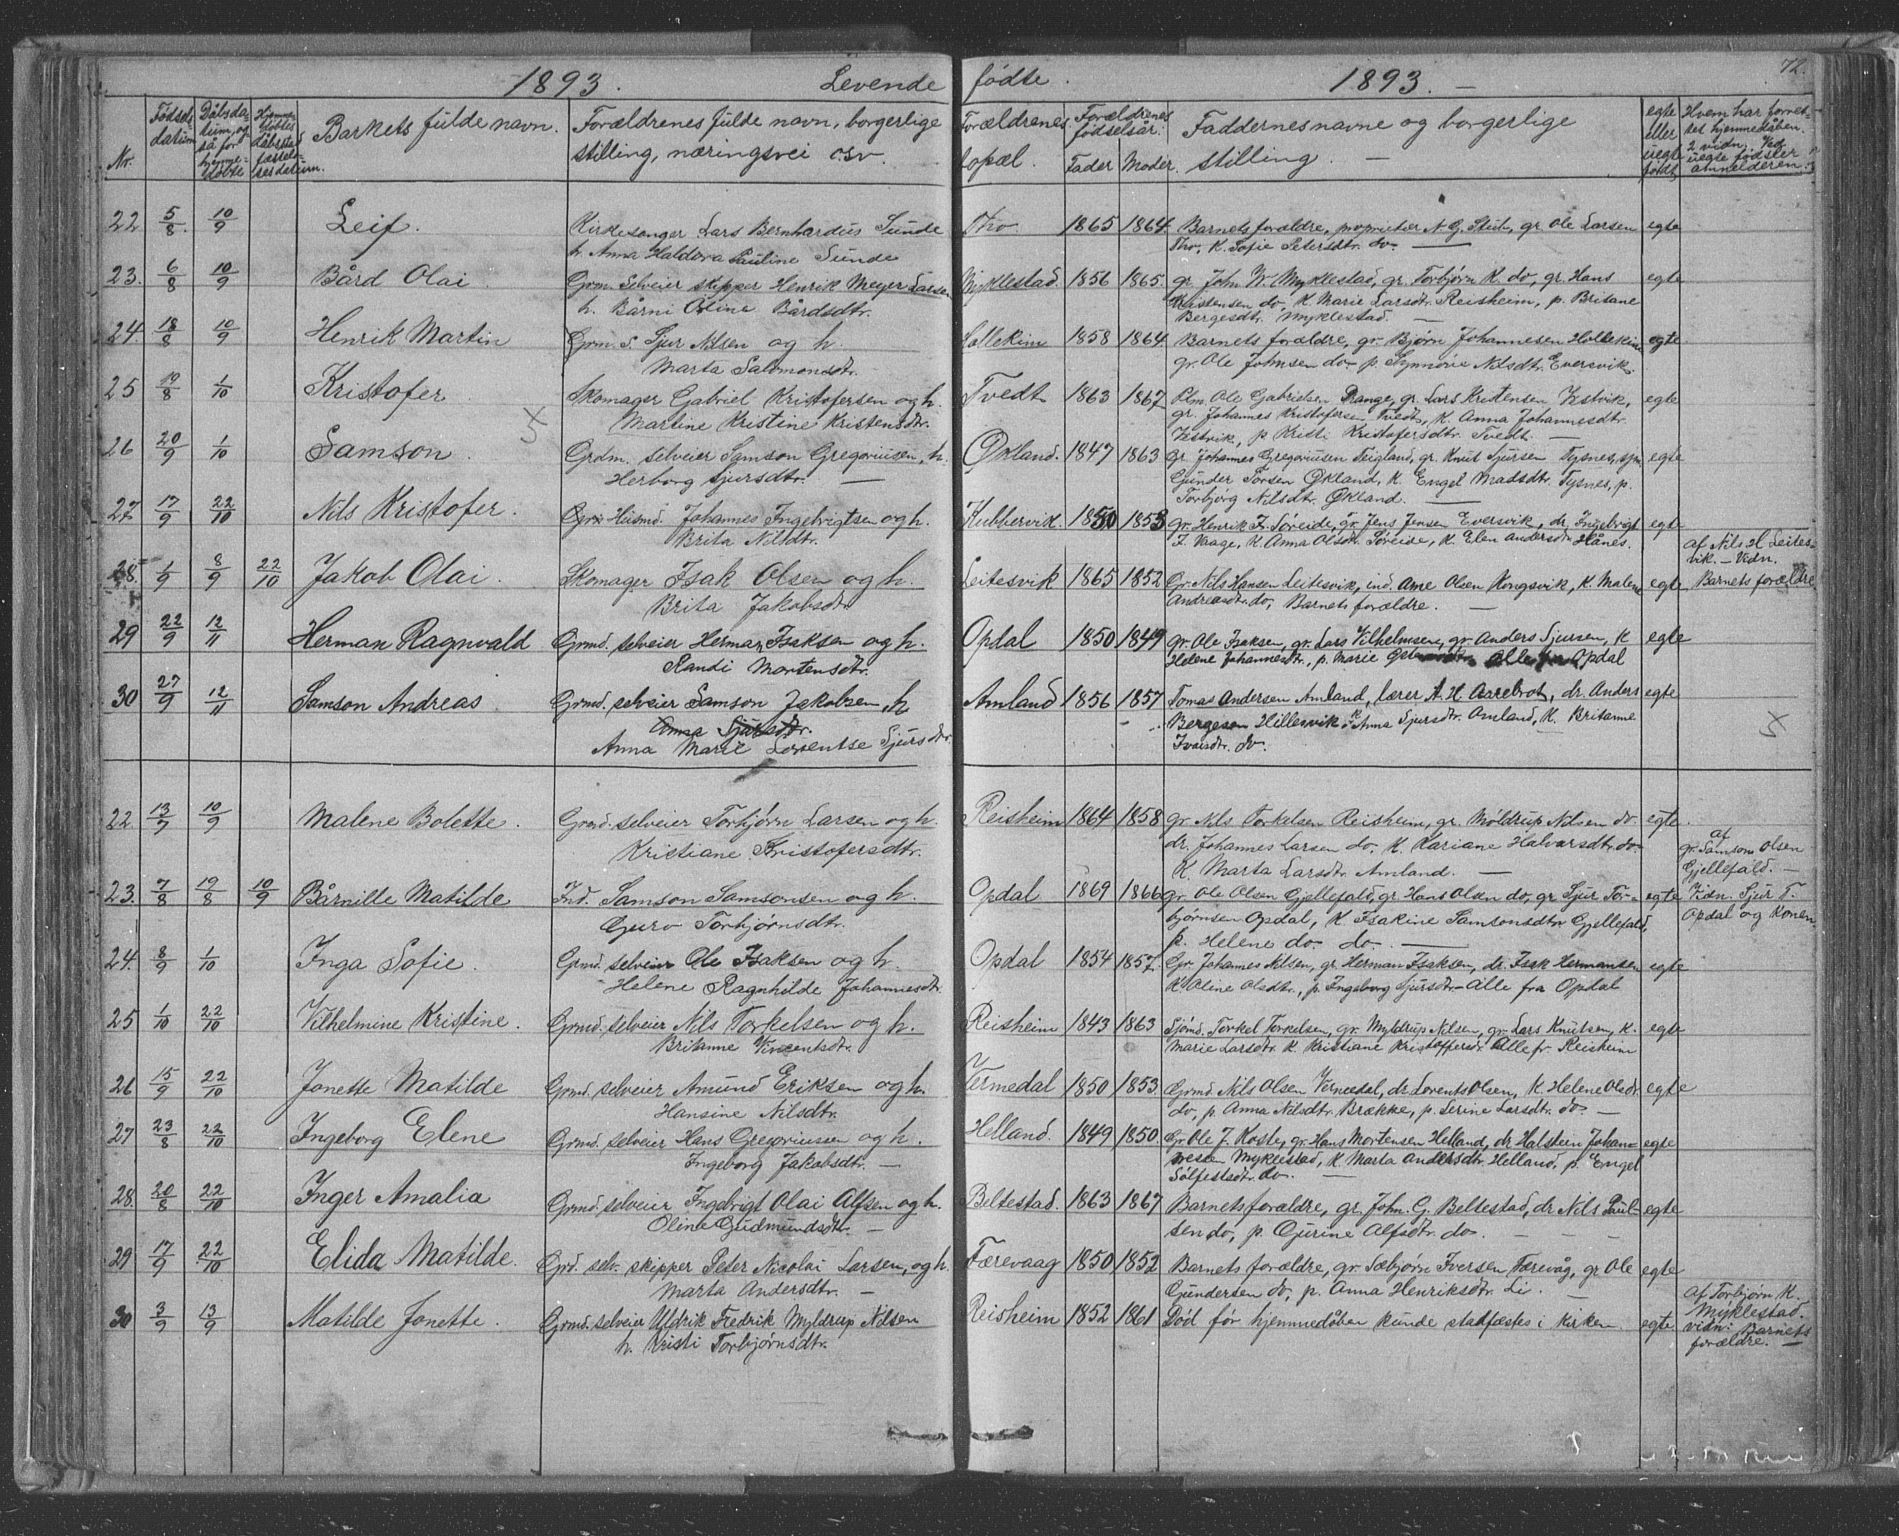 1893. Levende fødte. 1893. — 72.
Nr. Fødsels datum Dåbsdatum, også for hjemmedøbte Barnets fulde navn. Forældrenes fulde navn, borgerlige stilling, næringsvei osv. Forældrenes bopæl. Forældrenes fødselsår. Fader Moder. Faddernes navne og borgerlige stilling. — egte eller uegte født Hvem har forrettet hjemmedåben. 2 vidn. Ved uegte fødsler anmelderen.
22. 5/8. 10/9 Leif. Kirkesanger Lars Bernhardus Sunde Tho 1865 1864. Barnets forældre, proprietær N. G. Stub, gr. Ole Larsen egte
h. Anna Haldora Pauline Sunde Tho, k. Sofie Petersdtr. do. —
23. 6/8 10/9 Bård Olai. Grm. Selveier skipper Henrik Meyer Larsen Myklestad. 1856 1865. gr. John N. Myklestad, gr. Torbjørn K. do, gr. Hans egte
h. Bårni Oline Bårdsdtr. Kristensen do, k. Marie Larsdtr. Reisheim, p. Britane
Bergesdtr. Myklestad —
24. 18/8 10/9 Henrik Martin Grm. s. Sjur Nilsen og h. Hollekim 1858 1864 Barnets forældre, gr. Bjørn Johannesen Hollekim egte
Marta Salomonsdtr. gr. Ole Johnsen do p. Synnøve Nilsdtr. Eversvik.
25 19/8 1/10 Kristofer Skomager Gabriel Kristofersen og h. Tvedt 1863 1867. Ole Gabrielsen Drange, gr. Lars Kristensen Vestvik, egte
Martine Kristine Kristensdtr. gr. Johannes Kristofersen Tvedt, k. Anna Johannesdtr.
Vestvik, p. Kristi Kristofersdtr. Tvedt. —
26 20/9 1/10 Samson. Grdm. selveier Samson Gregoriusen, h. Økland. 1847 1863 gr. Johannes Gregoriusen Neigland, gr. Knut Sjursen Tysnes, egte
Herborg Sjursdtr. — Gunder Torsen Økland, k. Engel Madsdtr. Tysnes, p.
Torbjørg Nilsdtr. Økland. —
27. 17/9 22/10 Nils Kristofer. Husmd. Johannes Ingebrigtsen og h. Kubbervik. 1850 1853 gr. Henrik F. Søreide, gr. Jens Jensen Eversvik, dr. Ingebrigt egt
Brita Nilsdtr. J. Vaage, k. Anna Olsdtr. Søreide, k. Elen Andersdtr. Hånes. af Nils H Leites-
vik. — Vidn.
28. 1/9 8/9 22/10 Jakob Olai. Skomager Isak Olsen og h. Leitesvik 1865 1852 Gr. Nils Hansen Leitesvik, ind. Arne Olsen Kongsvik, k. Malene egte Barnets forældre
Brita Jakobsdtr. Andreasdtr. do, Barnets forældre. —
29 22/9 12/11 Herman Ragnvald Grmd. selveier Herman Isaksen og h. Opdal 1850 1849 gr. Ole Isaksen, gr. Lars Vilhelmsen, gr. Anders Sjursen, k egte
Randi Mortensdtr. Helene Johannesdtr., p. Marie alle fra Opdal
30 27/9 12/11 Samson Andreas Grmd. selveier Samson Jakobsen, h Amland 1856 1857 Tomas Andersen Amland, lærer A. H. Arrebrot, dr. Anders egte
Anna Sjursdtr. Bergesen Hillesvik k. Anna Sjursdtr. Amland, k. Britanne
Anna Marie Lorentse Sjursdtr Ivarsdtr. do.
22 13/7 10/9 Malene Bolette. Grmd. selveier Torbjørn Larsen og h. Reisheim 1864 1858 gr. Nils Torkelsen Reisheim, gr. Møldrup Nilsen do. egte.
Kristiane Kristofersdtr. dr. Johannes Larsen do. k. Kariane Halvarsdtr. do. af
gr. Samson Olsen
K. Marta Larsdtr. Amland. — Gjellefald. —
23. 7/8 19/8 10/9 Bårnille Matilde Ind. Samson Samsonsen og h. Opdal 1869 1866 gr. Ole Olsen Gjellefald, gr. Hans Olsen do, gr. Sjur Tor- egte Vidn. Sjur T.
Guro Torbjørnsdtr. bjørnsen Opdal, k. Isakine Samsonsdtr. Gjellefald, Opdal og konen
p. Helene do. do. —
24. 8/9 1/10 Inga Sofie. Grmd. selveier Ole Isaksen og h. Opdal 1854 1857. Gr. Johannes Nilsen, gr. Herman Isaksen, dr. Isak Hermansen egte
Helene Ragnhilde Johannesdtr. k. Oline Olsdtr., p. Ingeborg Sjursdtr— Alle fra Opdal
25 1/10 22/10 Vilhelmine Kristine. Grmd. selveier Nils Torkelsen og h. Reisheim 1843 1863 Sjømd. Torkel Torkelsen, gr. Myldrup Nilsen, gr. Lars Knutsen, k. egte
Britanne Vincentsdtr. Marie Larsdtr. k. Kristiane Kristoffersdr. Alle fr. Reisheim
26 15/9 22/10 Jonette Matilde Grmd. selveier Amund Eriksen og h. Vernedal 1850 1853. Grmd. Nils Olsen Vernedal, dr. Lorents Olsen, k. Helene Olsdr. egte
Hansine Nilsdtr. do, p. Anna Nilsdtr. Brække, p. Serine Larsdtr. do —
27 23/8 22/10 Ingeborg Elene Grmd. selveier Hans Gregoriussen og h. Helland. 1849 1850. Gr. Ole J. Koste, gr. Hans Mortensen Helland, dr. Halstein Johan- egte
Ingeborg Jakobsdtr. — nesen Myklestad, k. Marta Andersdtr. Helland, p. Engel
Sølfestsdtr. do. —
28. 20/8 22/10 Inger Amalia Grmd. selveier Ingebrigt Olai Alfsen og h. Beltestad. 1863 1867 Barnets forældre, gr. John. G. Beltestad, dr Nils Paul- egte
Oline Gudmundsdtr. — sen do, p. Gurine Alfsdtr. do. — — —
29 17/9 22/10 Elida Matilde. Grd. selv. skipper Peter Nicolai Larsen, og h. Færevaag 1850 1852 Barnets forældre, gr. Sæbjørn Iversen Færevåg, gr Ole egte
Marta Andersdtr. — Gundersen do, p. Anna Henriksdtr. Li. — af Torbjørn K.
30 3/9 13/9 Matilde Jonette. Grmd. selveier Uldrik Fredrik Myldrup Nilsen Reisheim 1852 1861 Død før hjemmedåben kunde stadfæstes i kirken. egte Myklestad.
h. Kristi Torbjørnsdtr. vidn: Barnets
forældre. —